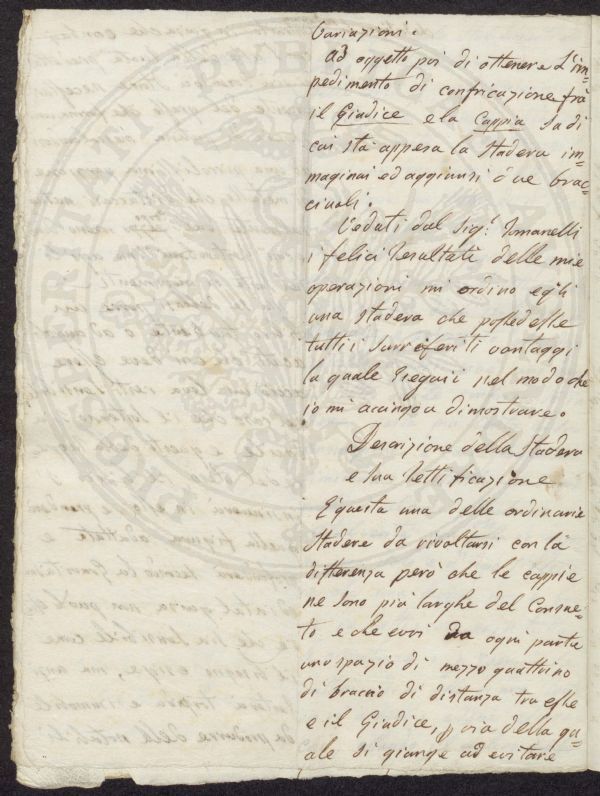 Variazioni.
Ad oggetto poi di ottenere l'im=
pedimento di confricazione frà
il Giudice e la Cappia da di
cui stà appesa la Stadera im=
maginai ed aggiunsi due brac=
ciuoli.
Veduti dal Sig.r Tomanelli
i felici Resultati delle mie
operazioni mi ordinò egli
una stadera che possedesse
tutti i surriferiti vantaggi
la quale Eseguii nel modo che
io mi accingo a dimostrare.
Descrizione della Stadera
e sua Rettificazione
È questa una delle ordinarie
Stadere da rivoltarsi con la
differenza però che le cappie
ne sono più larghe del Consue=
to e che evvi da ogni parte
uno spazio di mezzo quattrino
di braccio di distanza tra esse
e il Giudice, p via della qu=
ale si giunge ad evitare